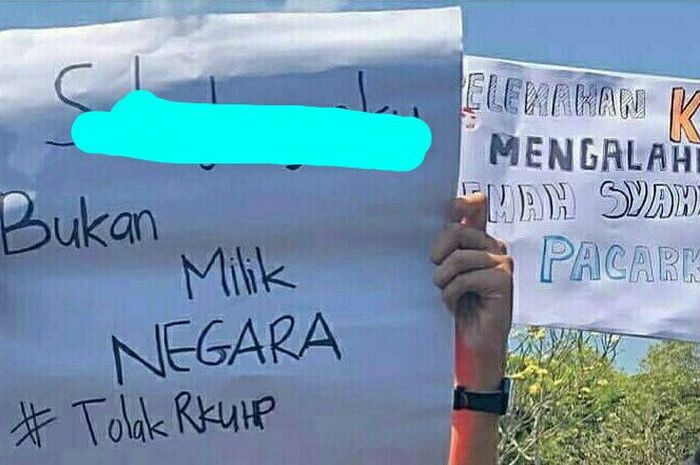 Bukan
Milik
NEGARA
# Tolak RKUHP
PELEMAHAN K
MENGALAH
EMAH SYAH
PACARK